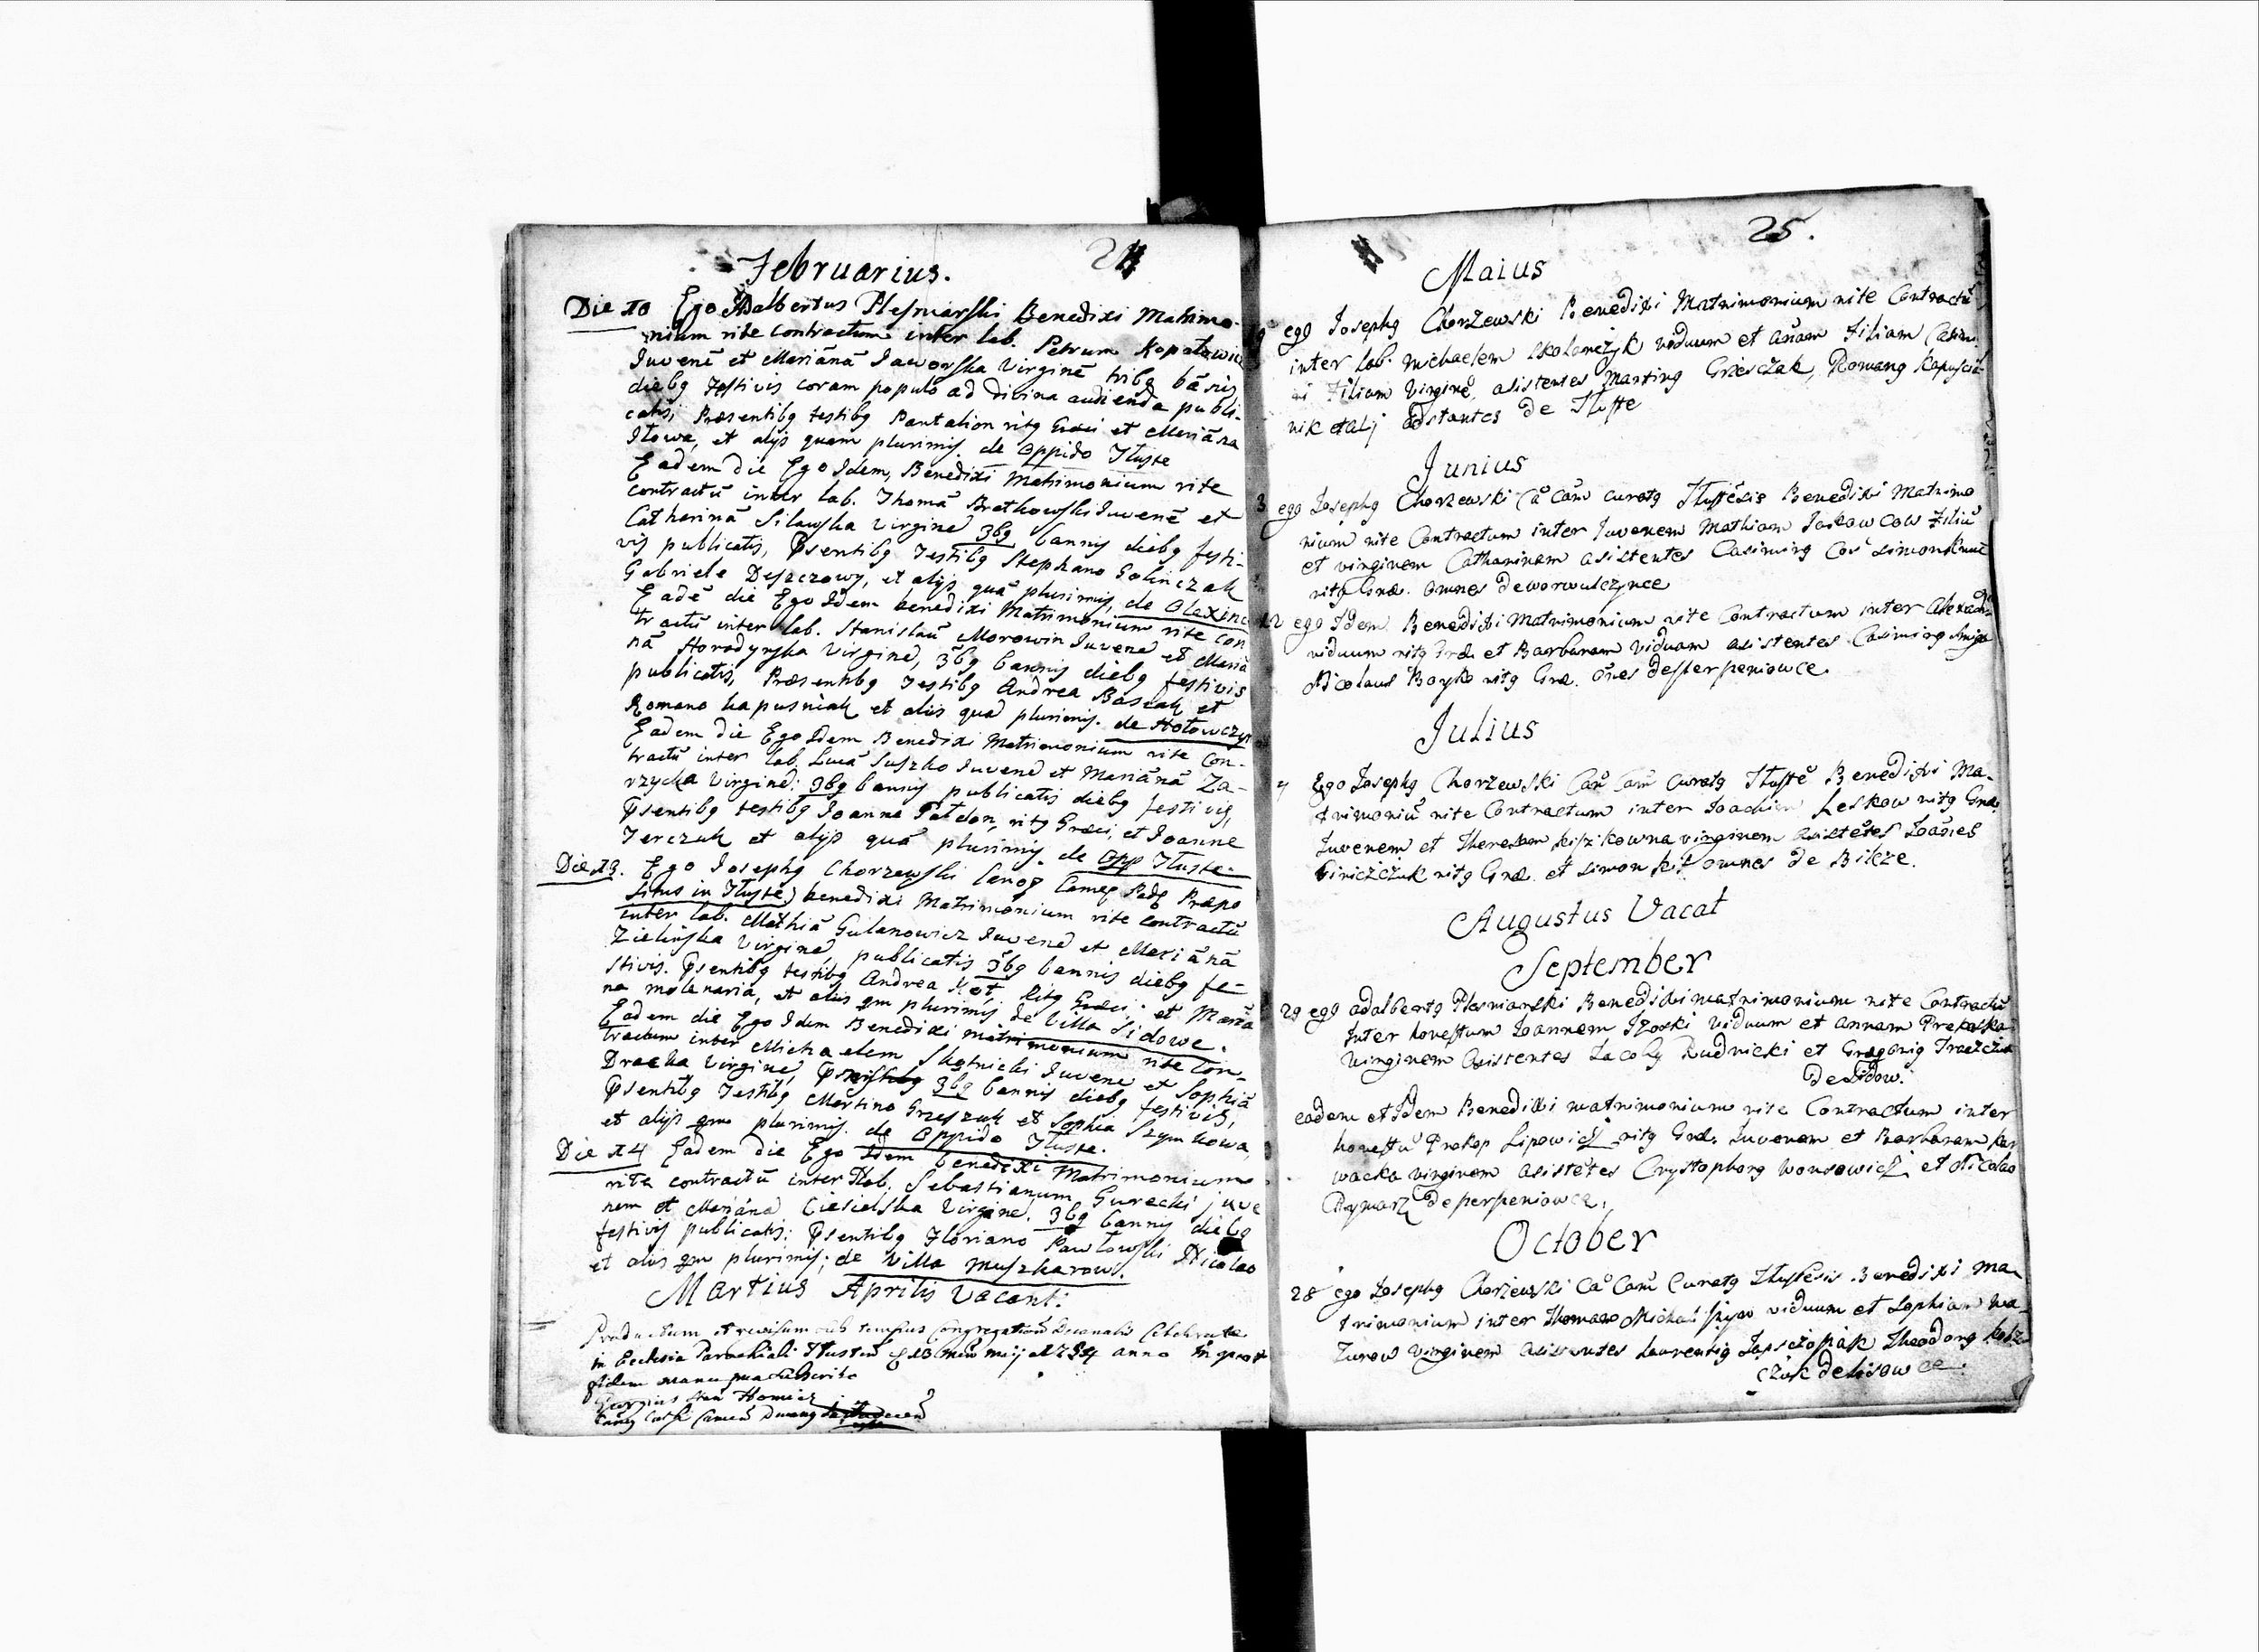 24
Februarius.
Die 10 Ego Adalbertus Plesniarski Benedixi Matrimo-
nium rite contractum inter lab. Petrum Kopatowicz
Juvenē et Mariānā Jaworska Virginē tribg bānis
diebg festivis coram populo ad divina audienda publi-
catis, Præsentibg testibg Pantalion ritg Græci et Mariāna
Iłowa, et alijs quam plurimis. de oppido Tłuste
Eadem die Ego Idem, Benedixi Matrimonium rite
contractū inter lab. Thomā Bretkowski Juvenē et
Catharinā Silawska Virginē 3bg bannis diebg festi-
vis publicatis, Psentibg Testibg Stephano Golinczak
Gabriele Deszczowy, et alijs quā plurimis, de Olexinc
Eadē die Ego Idem benedixi Matrimonium rite con
tractū inter lab. Stanislaū Morowin Juvenē et Mariā
nā Horodynska Virginē, 3bg bannis diebg festivis
publicatis, Præsentibg Testibg Andrea Basiak et
Romano kapusniak et aliis quā plurimis. de Hołowczyn
Eadem die Ego Idem Benedixi Matrimonium rite Con-
tractū inter lab. Lucā Suszko Juvenē et Mariānā Za-
rzycka Virginē: 3bg bannis publicatis diebg festivis,
Psentibg testibg Joanne Pałdon, ritg Græci, et Joanne
Jerczuk et alijs quā plurimis. de Opp Tłuste.
Die 13. Ego Josephg Chorzewski Canog Cameg Præpo
situs in Tłuste) benedixi Matrimonium rite contractū
inter lab. Mathiā Gulanowicz Juvenē et Mariānā
Zielinska Virginē, publicatis 3bg bannis diebg fe-
stivis. Psentibg testibg Andrea Kot, Ritg Græci; et Mariā
na molenaria, et aliis qm plurimis de Villa Sidowe.
Eadem die Ego Idem Benedixi matrimonium rite Con-
tractum inter Michaelem Skotnicki Juvene et Sophiā
Dracka Virginē, 3bg bannis diebg festivis,
Psentibg Testibg Martino Grzeszuk et Sophia Szymkowa,
et alijs qm plurimis. de Oppido Tłuste.
Die 14 Eadem die Ego Idem benedixi Matrimonium
rite contractū inter Nob. Sebastianum Gurecki juve
nem et Mariānā Ciesielska Virginē. 3bg bannis diebg
festivis publicatis; Psentibg Floriano Pawłowski Nicolao
et aliis qm plurimis; de Villa Muszkarow.
Martius Aprilis Vacant:
Productum et revisum sub tempus Congregationis Decanalis Celebratæ
in Ecclesia Parochiali Tłusten 13 Mai 1754 anno in quor
fidem manu pria subscribo
25.
Maius
ego Josephg Chorzewski Benedixi Matrimonium rite Contractū
inter lab. Michaelem Skolomczyk viduum et anam Filiam Casimi
ri Filiam Virginē, asistentes Marting Griesczak, Romang Kapuscia
nik et alij adstantes de Tłuste
Junius
3 ego Josephg Chorzewski Cā Cam curatg Tłustēsis Benedixi Matrimo
nium rite Contractum inter Juvenem Mathiam Jackow Cow Filiū
et virginem Catharinam asistentes Casimirg Cow Simon
ritg Græ. omnes deworwulczynce
12 ego Idem Benedixi Matrimonium rite Contractum inter Alexadrū
viduum ritg Græ. et Barbaram viduam asistentes Casimirg
Nicolaus Boyko ritg Græ. ōnes de
Julius
7 Ego Josephg Chorzewski Can Cam Curatg Tłustē Benedixi Ma-
trimoniū rite Contractum inter Joachim Leskow ritg Græ.
Juvenem et Theresam virginem asistētes Joānes
Giriczczuk ritg Græ. et Simon omnes de Bilcze.
Augustus Vacat
September
29 ego adalbertg Plesniarski Benedixi matrimonium rite Contractū
Inter honestum Joannem Izoski viduum et annam
Virginem asistentes Jacobg Rudnicki et Gregorig
de Sidow.
eadem et Idem Benedixi matrimonium rite Contractum inter
honestū Prokop Lipowicz ritg Græ. Juvenem et Barbaram kar
wacka virginem asistētes Crystophorg Wonsowicz et Nicolao
Rymarz
October
28 ego Josephg Chorzewski Cā Cam Curatg Tłustēsis Benedixi ma
trimonium inter Thomam viduum et Sophiam Ma
Zurow virginem asistentes Laurentig Theodorg
czuk de Lisowce.